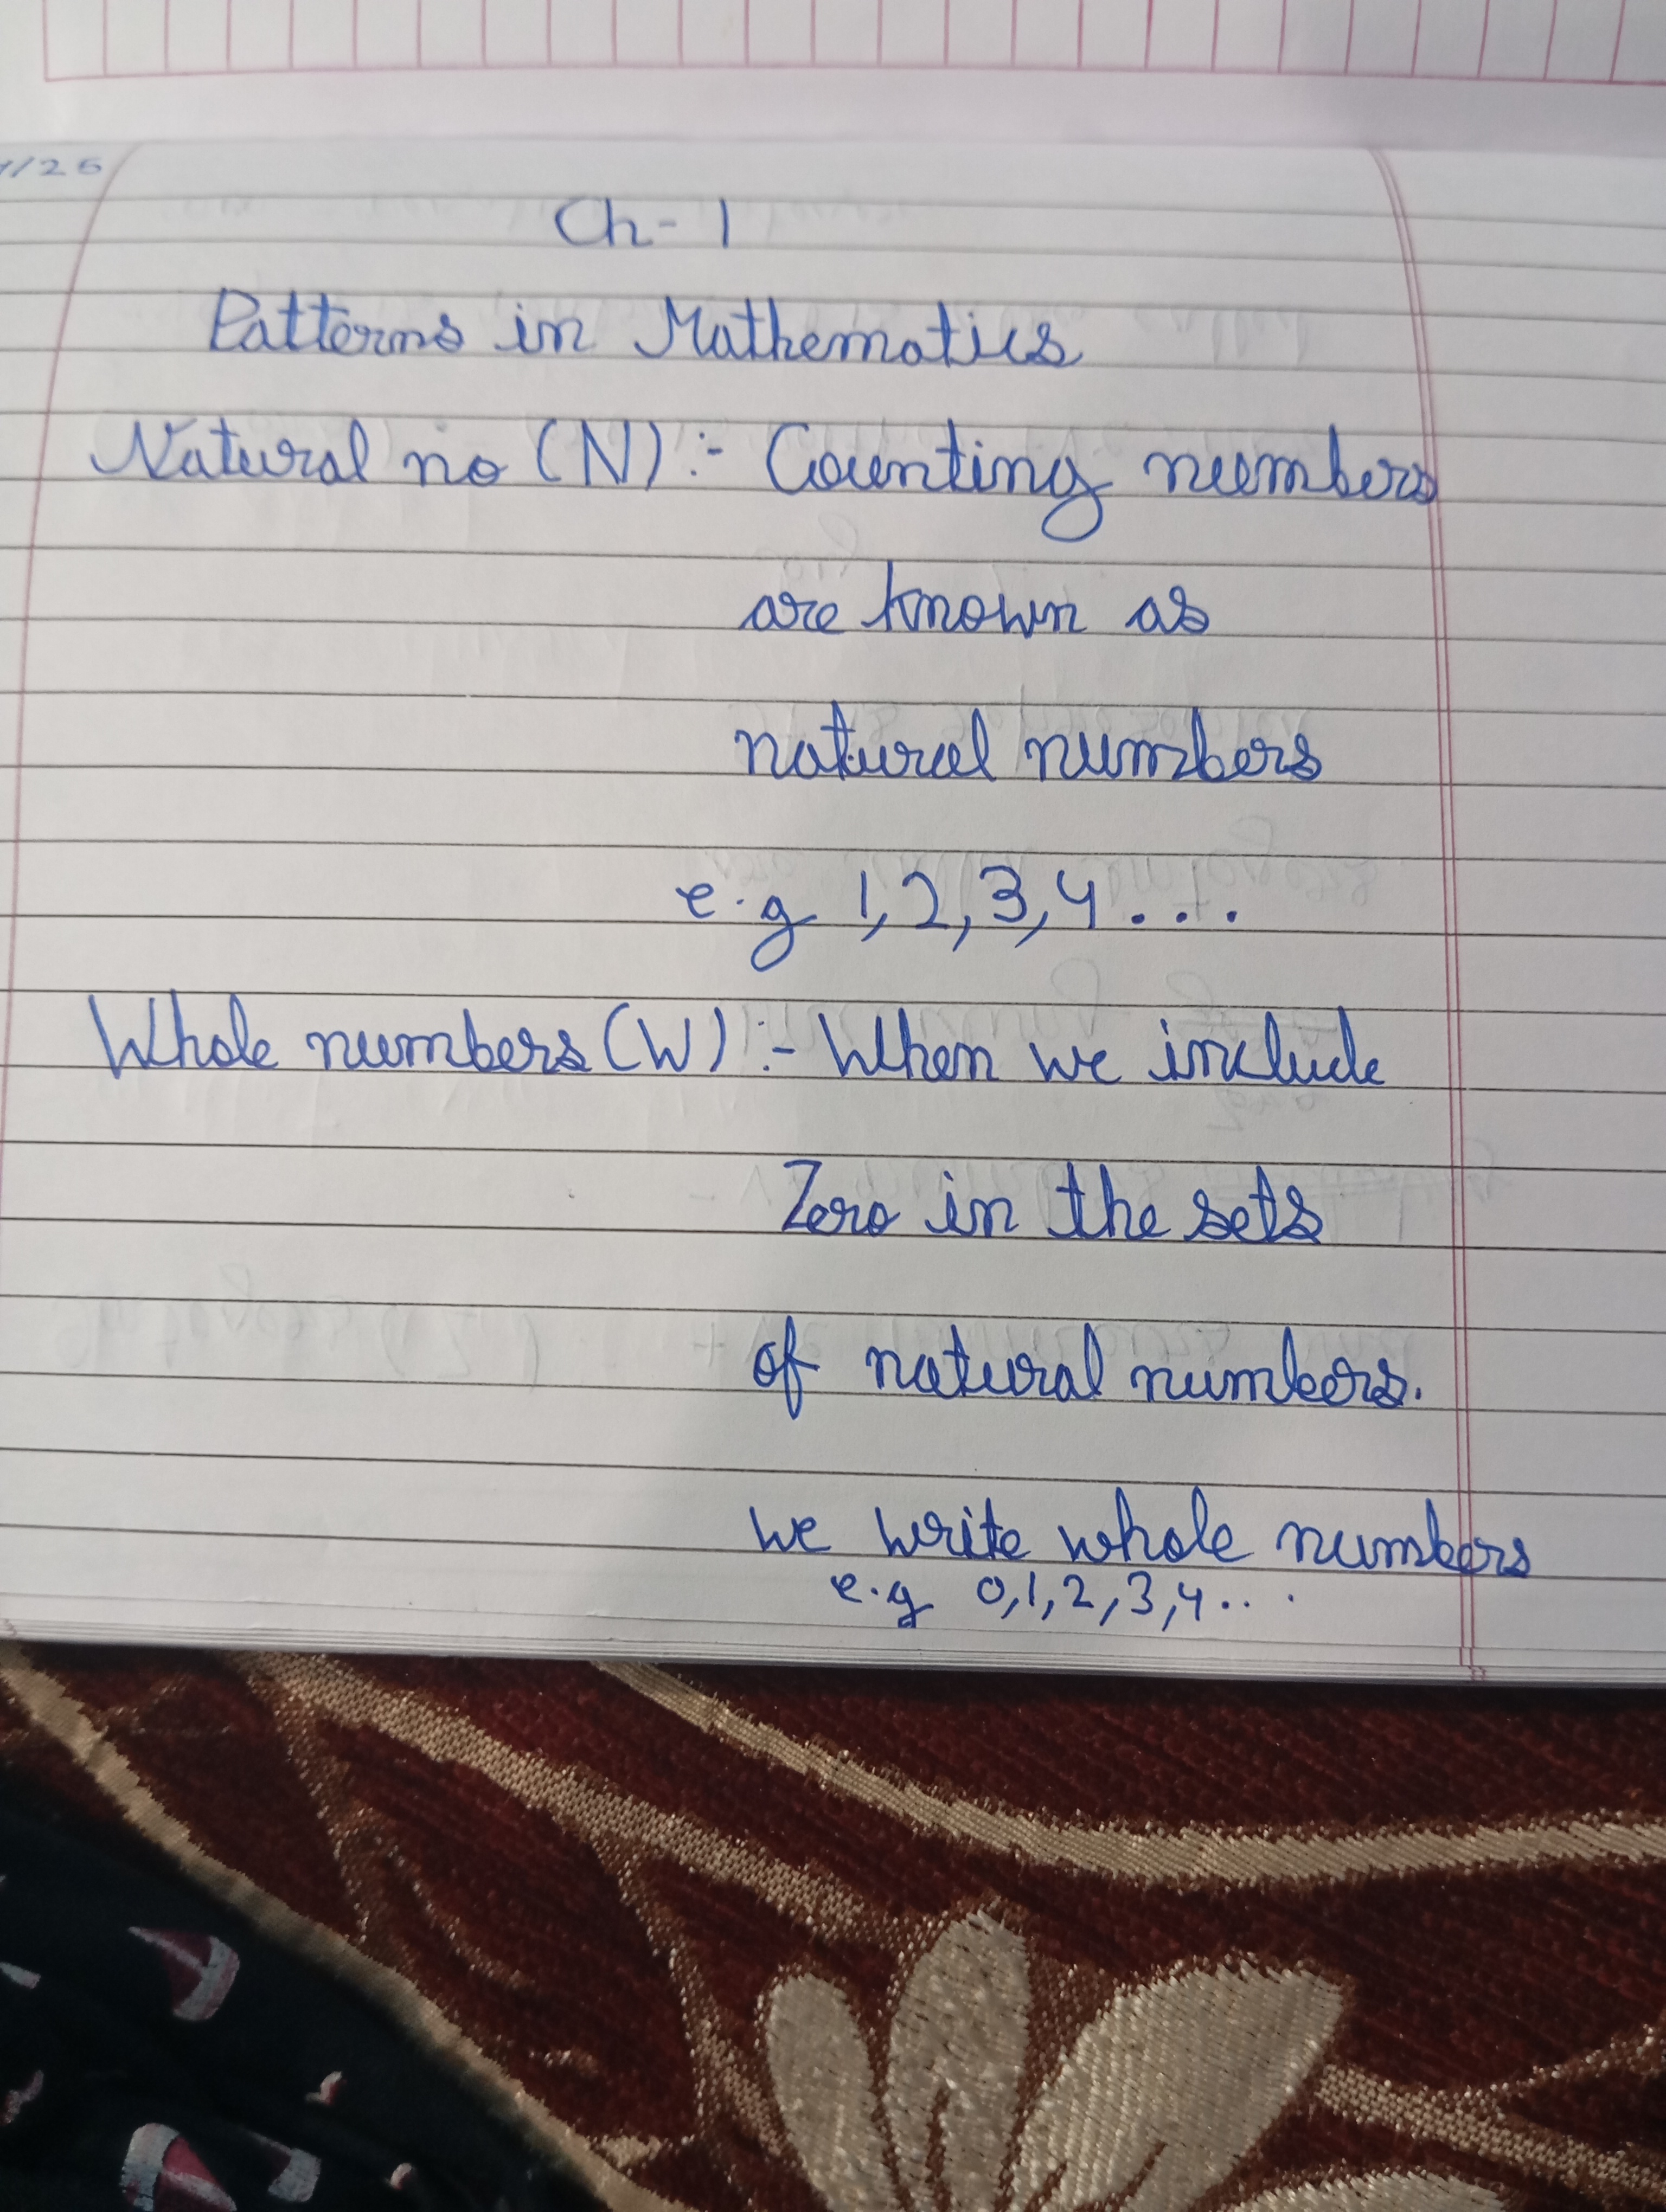 /25
Ch-1
Patterns in Mathematics
Natural no (N):- Counting numbers
are known as
natural numbers
e.g 1,2,3,4....
Whole numbers (W):- When we include
Zero in the sets
of natural numbers.
we write whole numbers
e.g 0,1,2,3,4...